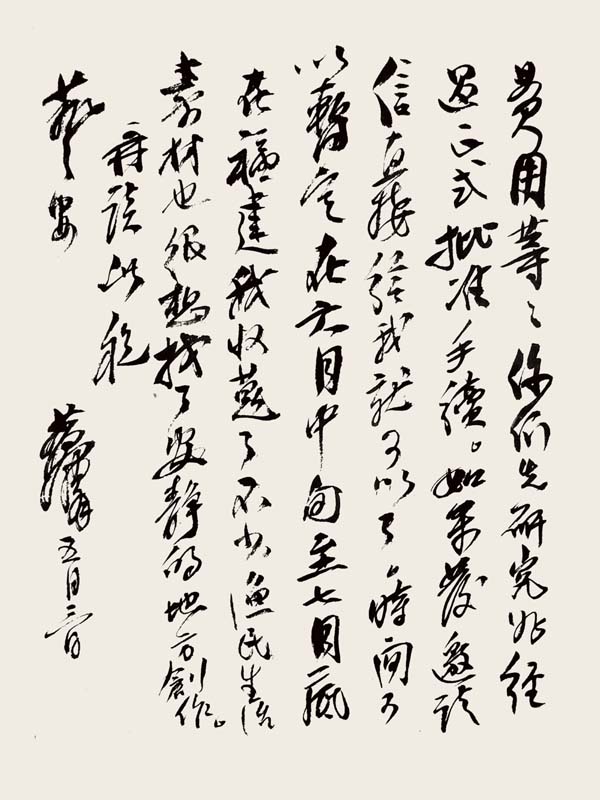 费用等等你们先研究好经
过正式批准手续。如果发邀请
信直接给我就可以了。时间可
以暂定在六月中旬至七月底
在福建我收集了不少渔民生活
素材也很想找个安静的地方创作。
再谈 此祝
艺安
黄胄 五月三日